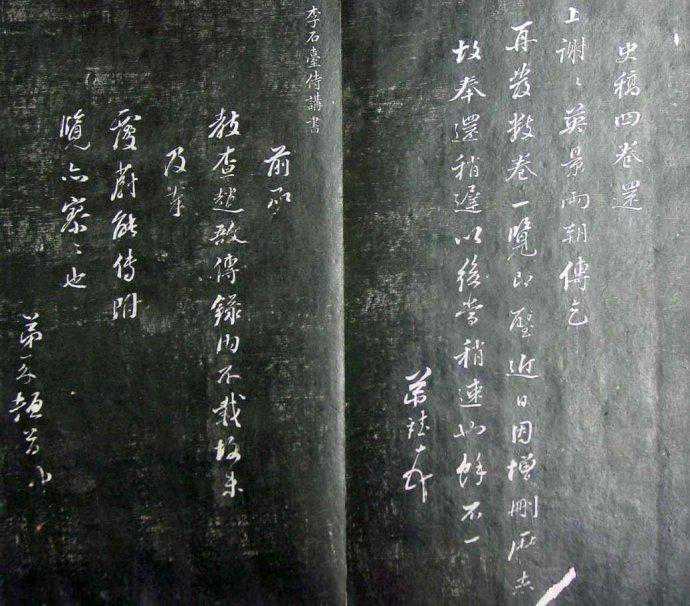 史稿四卷還
上謝〻英景兩朝傳乞
再發數卷一覽即璧近日因增刪
故奉還稍遲以後當稍速也餘不一
弟
李石臺侍講書
前承
教查趙啟傳錄內不載故未
及
慶蔚能傳附
覽亦寥〻也
弟頓首